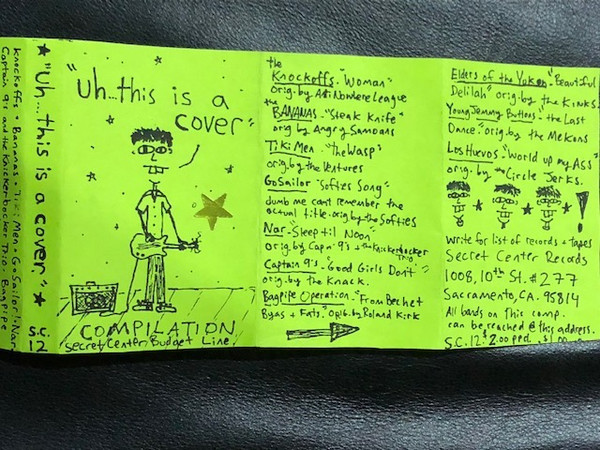 Knockoffs + Bananas + Tiki Men + Go Sailor + Nar
Captain 9's and the Knickerbocker Trio - Bagpipe
"Uh...this is a cover"
S.C.
12
"Uh...this is a
cover"
COMPILATION
Secret Center Budget Line
the
Knockoffs - "Woman"
orig. by Anti Nowhere League
the
BANANAS - "Steak Knife"
orig by Angry Samoans
Tiki Men - "The Wasp"
orig. by the Ventures
Go Sailor "Softies Song"
dumb me cant remember the
actual title - orig by the Softies
Nar - Sleep til Noon"
orig. by Capn 9's + the Knickerbocker
Trio
Captain 9's - "Good Girls Don't"
orig. by the Knack.
Bagpipe Operation - "From Bechet
Byas + Fats". Orig. by Roland Kirk
Elders of the Yukon - "Beautiful
Delilah" orig. by the Kinks.
Young Jemmy Buttons - the Last
Dance." orig. by the Mekons
Los Huevos - "World up my Ass"
orig. by the Circle Jerks.
!
Write for list of records + tapes
Secret Center Records
1008, 10th St. #277
Sacramento, CA. 95814
All bands on This comp.
can be reached @ this address.
S.C. 12 $2.00 ppd.